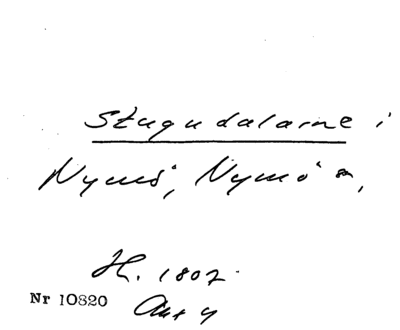 Stugudalarne i
Nymö, Nymö sn,
Hl. 1807.
Nr 10820 Akt 4